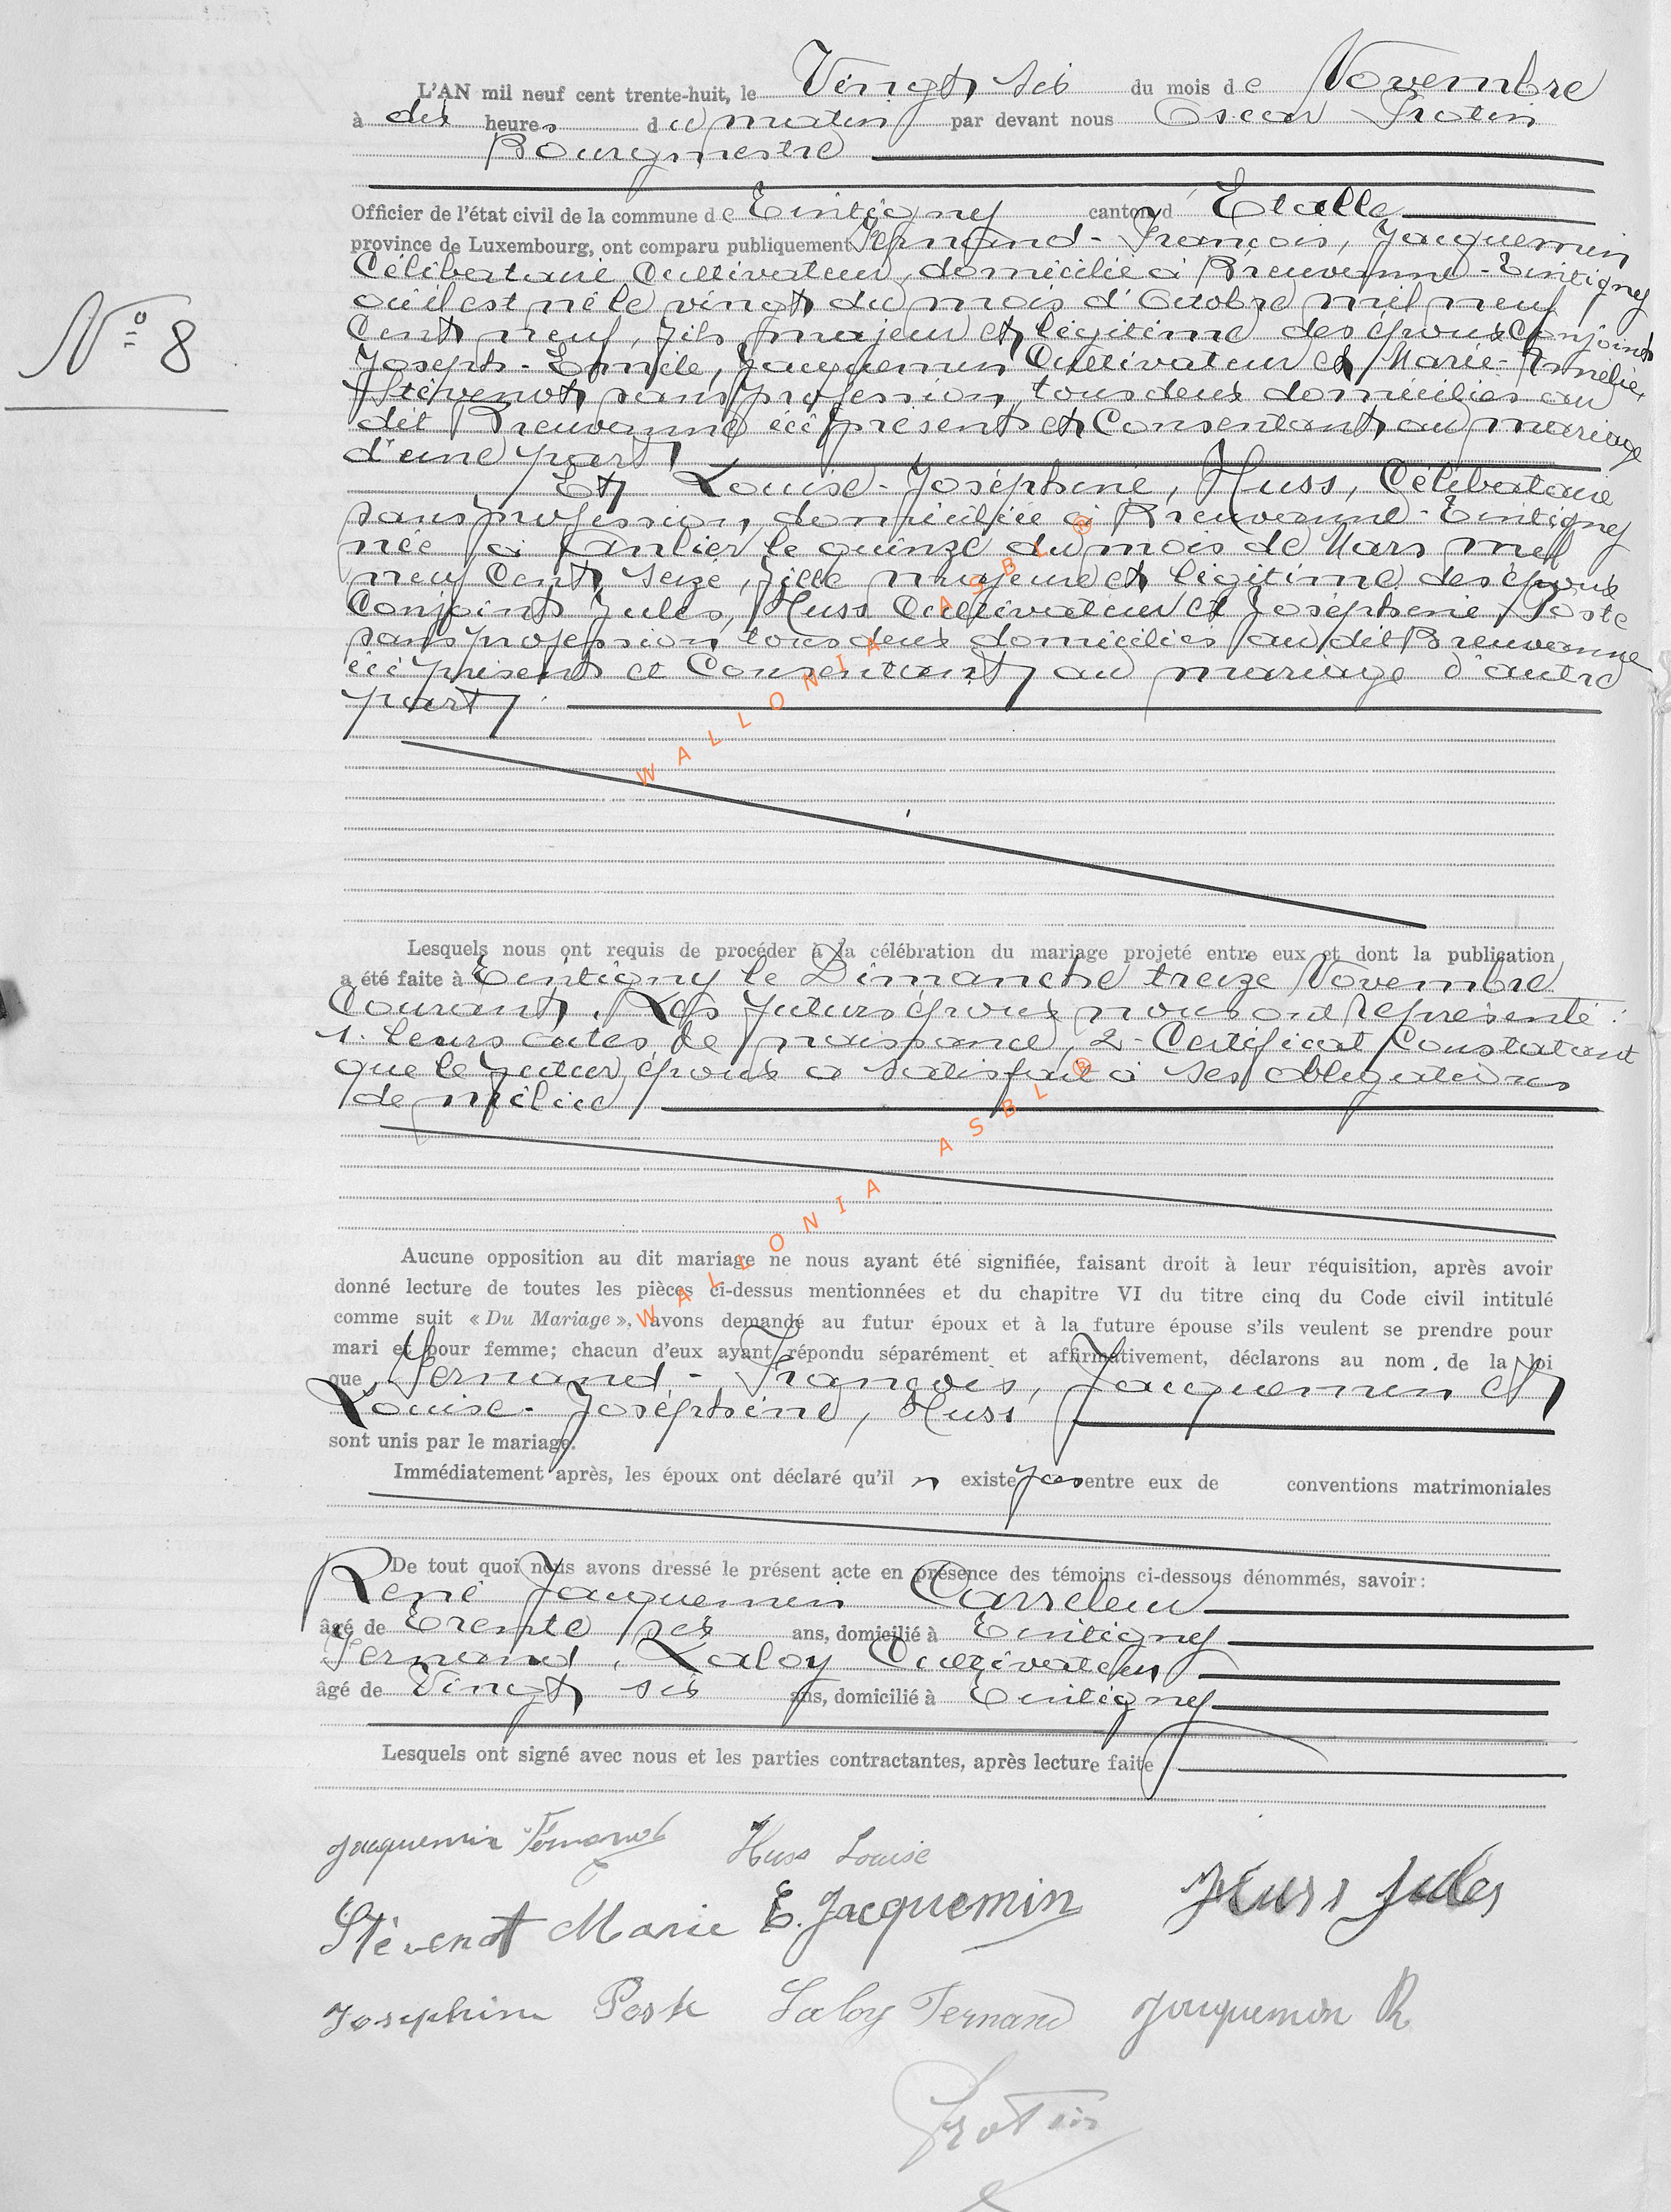 L'AN mil neuf cent trente-huit, le Vingt six du mois de Novembre
à dix heures du matin par devant nous Oscar Protin
Bourgmestre
Officier de l'état civil de la commune de Tintigny canton d'Etalle
province de Luxembourg, ont comparu publiquement Fernand-François, Jacquemin
Célibataire Cultivateur, domicilié à Breuvanne-Tintigny
où il est né le vingt du mois d'Octobre mil neuf
N° 8
Cent neuf, fils majeur et légitime des époux Conjoints
Joseph-Emile, Jacquemin Cultivateur et Marie-Amélie,
Stévenot sans profession, tous deux domiciliés au
dit Breuvanne ici présents et Consentant au mariage
d'une part
Et Louise-Joséphine, Huss, Célibataire
sans profession, domiciliée à Breuvanne-Tintigny
née à Anlier le quinze du mois de Mars mil
neuf Cent seize, fille majeure et légitime des époux
Conjoints Jules, Huss Cultivateur et Joséphine, Poste
sans profession tous deux domiciliés au dit Breuvanne
ici présents et Consentant au mariage d'autre
part
WALLONIA ASBL ®
Lesquels nous ont requis de procéder à la célébration du mariage projeté entre eux et dont la publication
a été faite à Tintigny le Dimanche treize Novembre
Courant. Les futurs époux nous ont représenté :
1. leurs actes de naissance, 2- Certificat Constatant
que le futur époux a satisfait à ses obligations
de milice
WALLONIA ASBL ®
Aucune opposition au dit mariage ne nous ayant été signifiée, faisant droit à leur réquisition, après avoir
donné lecture de toutes les pièces ci-dessus mentionnées et du chapitre VI du titre cinq du Code civil intitulé
comme suit « Du Mariage », avons demandé au futur époux et à la future épouse s'ils veulent se prendre pour
mari et pour femme; chacun d'eux ayant répondu séparément et affirmativement, déclarons au nom de la loi
que Fernand-François, Jacquemin et
Louise-Joséphine, Huss
sont unis par le mariage.
Immédiatement après, les époux ont déclaré qu'il n existe pas entre eux de conventions matrimoniales
De tout quoi nous avons dressé le présent acte en présence des témoins ci-dessous dénommés, savoir :
René Jacquemin Carreleur
âgé de Trente six ans, domicilié à Tintigny
Fernand, Laloy Cultivateur
âgé de Vingt six ans, domicilié à Tintigny
Lesquels ont signé avec nous et les parties contractantes, après lecture faite
Jacquemin Fernand Huss Louise
Stévenot Marie E. Jacquemin Huss Jules
Josephine Poste Laloy Fernand Jacquemin R
Protin